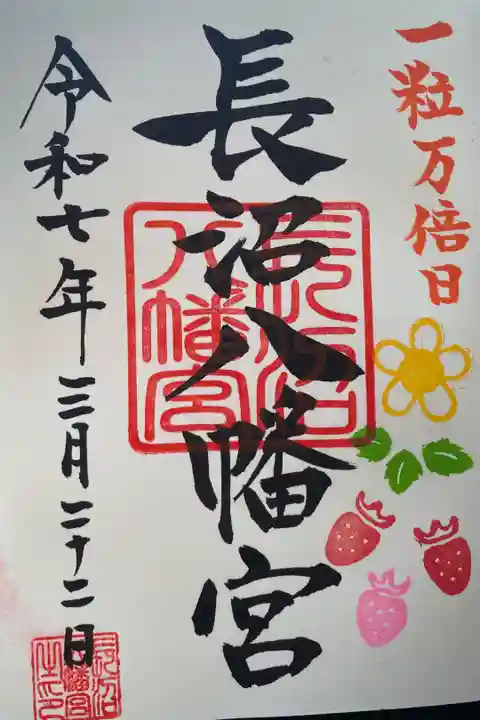 一粒万倍日
長沼八幡宮
長沼
八幡宮
令和七年三月二十二日
長沼
八幡宮
之印